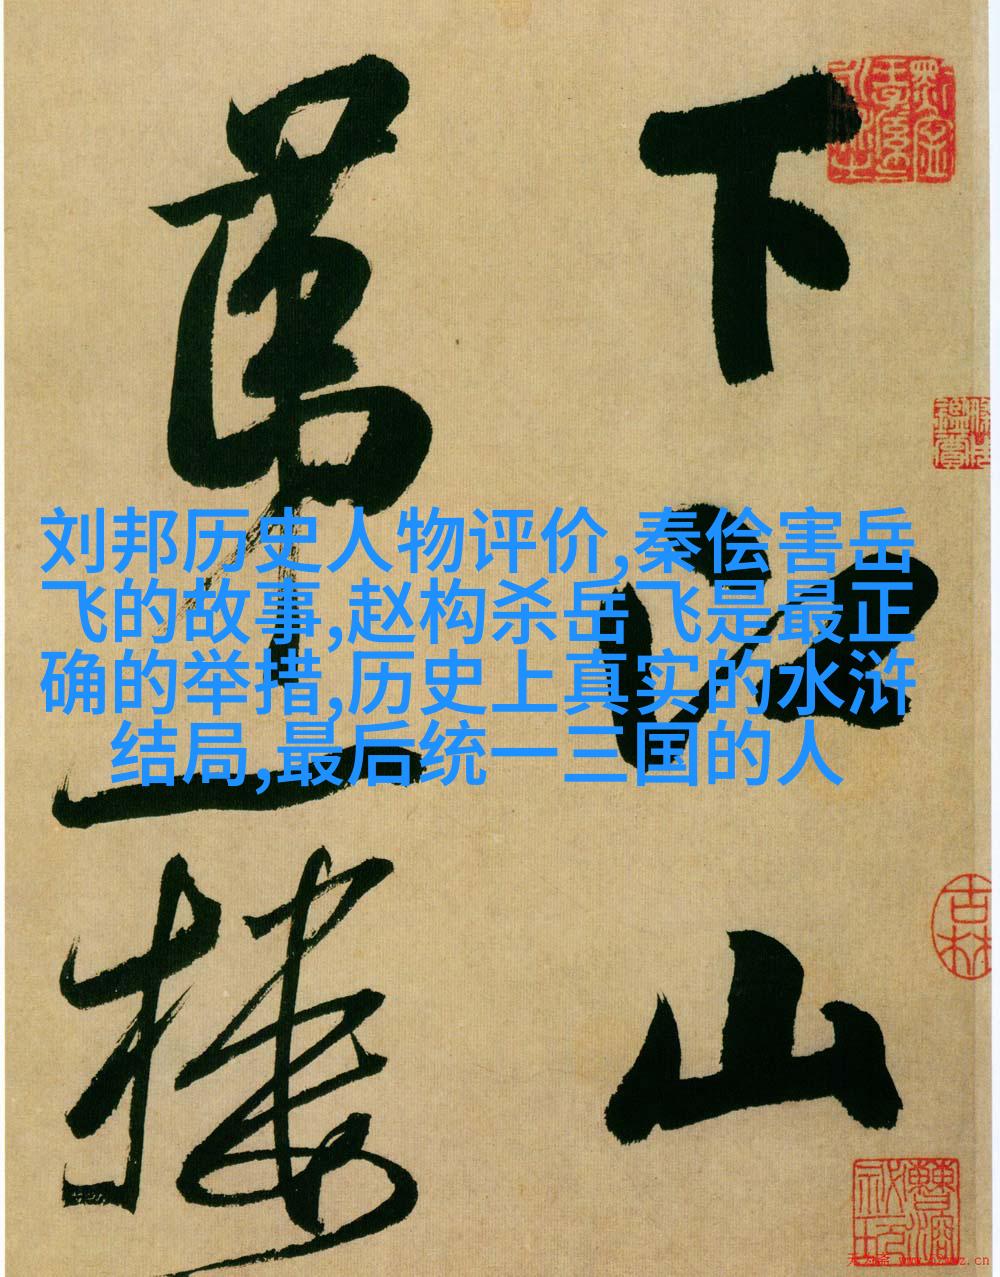 下江山
第一楼
刘邦历史人物评价,秦侩害岳
飞的故事,赵构杀岳飞是最正
确的举措,历史上真实的水浒
结局,最后统一三国的人